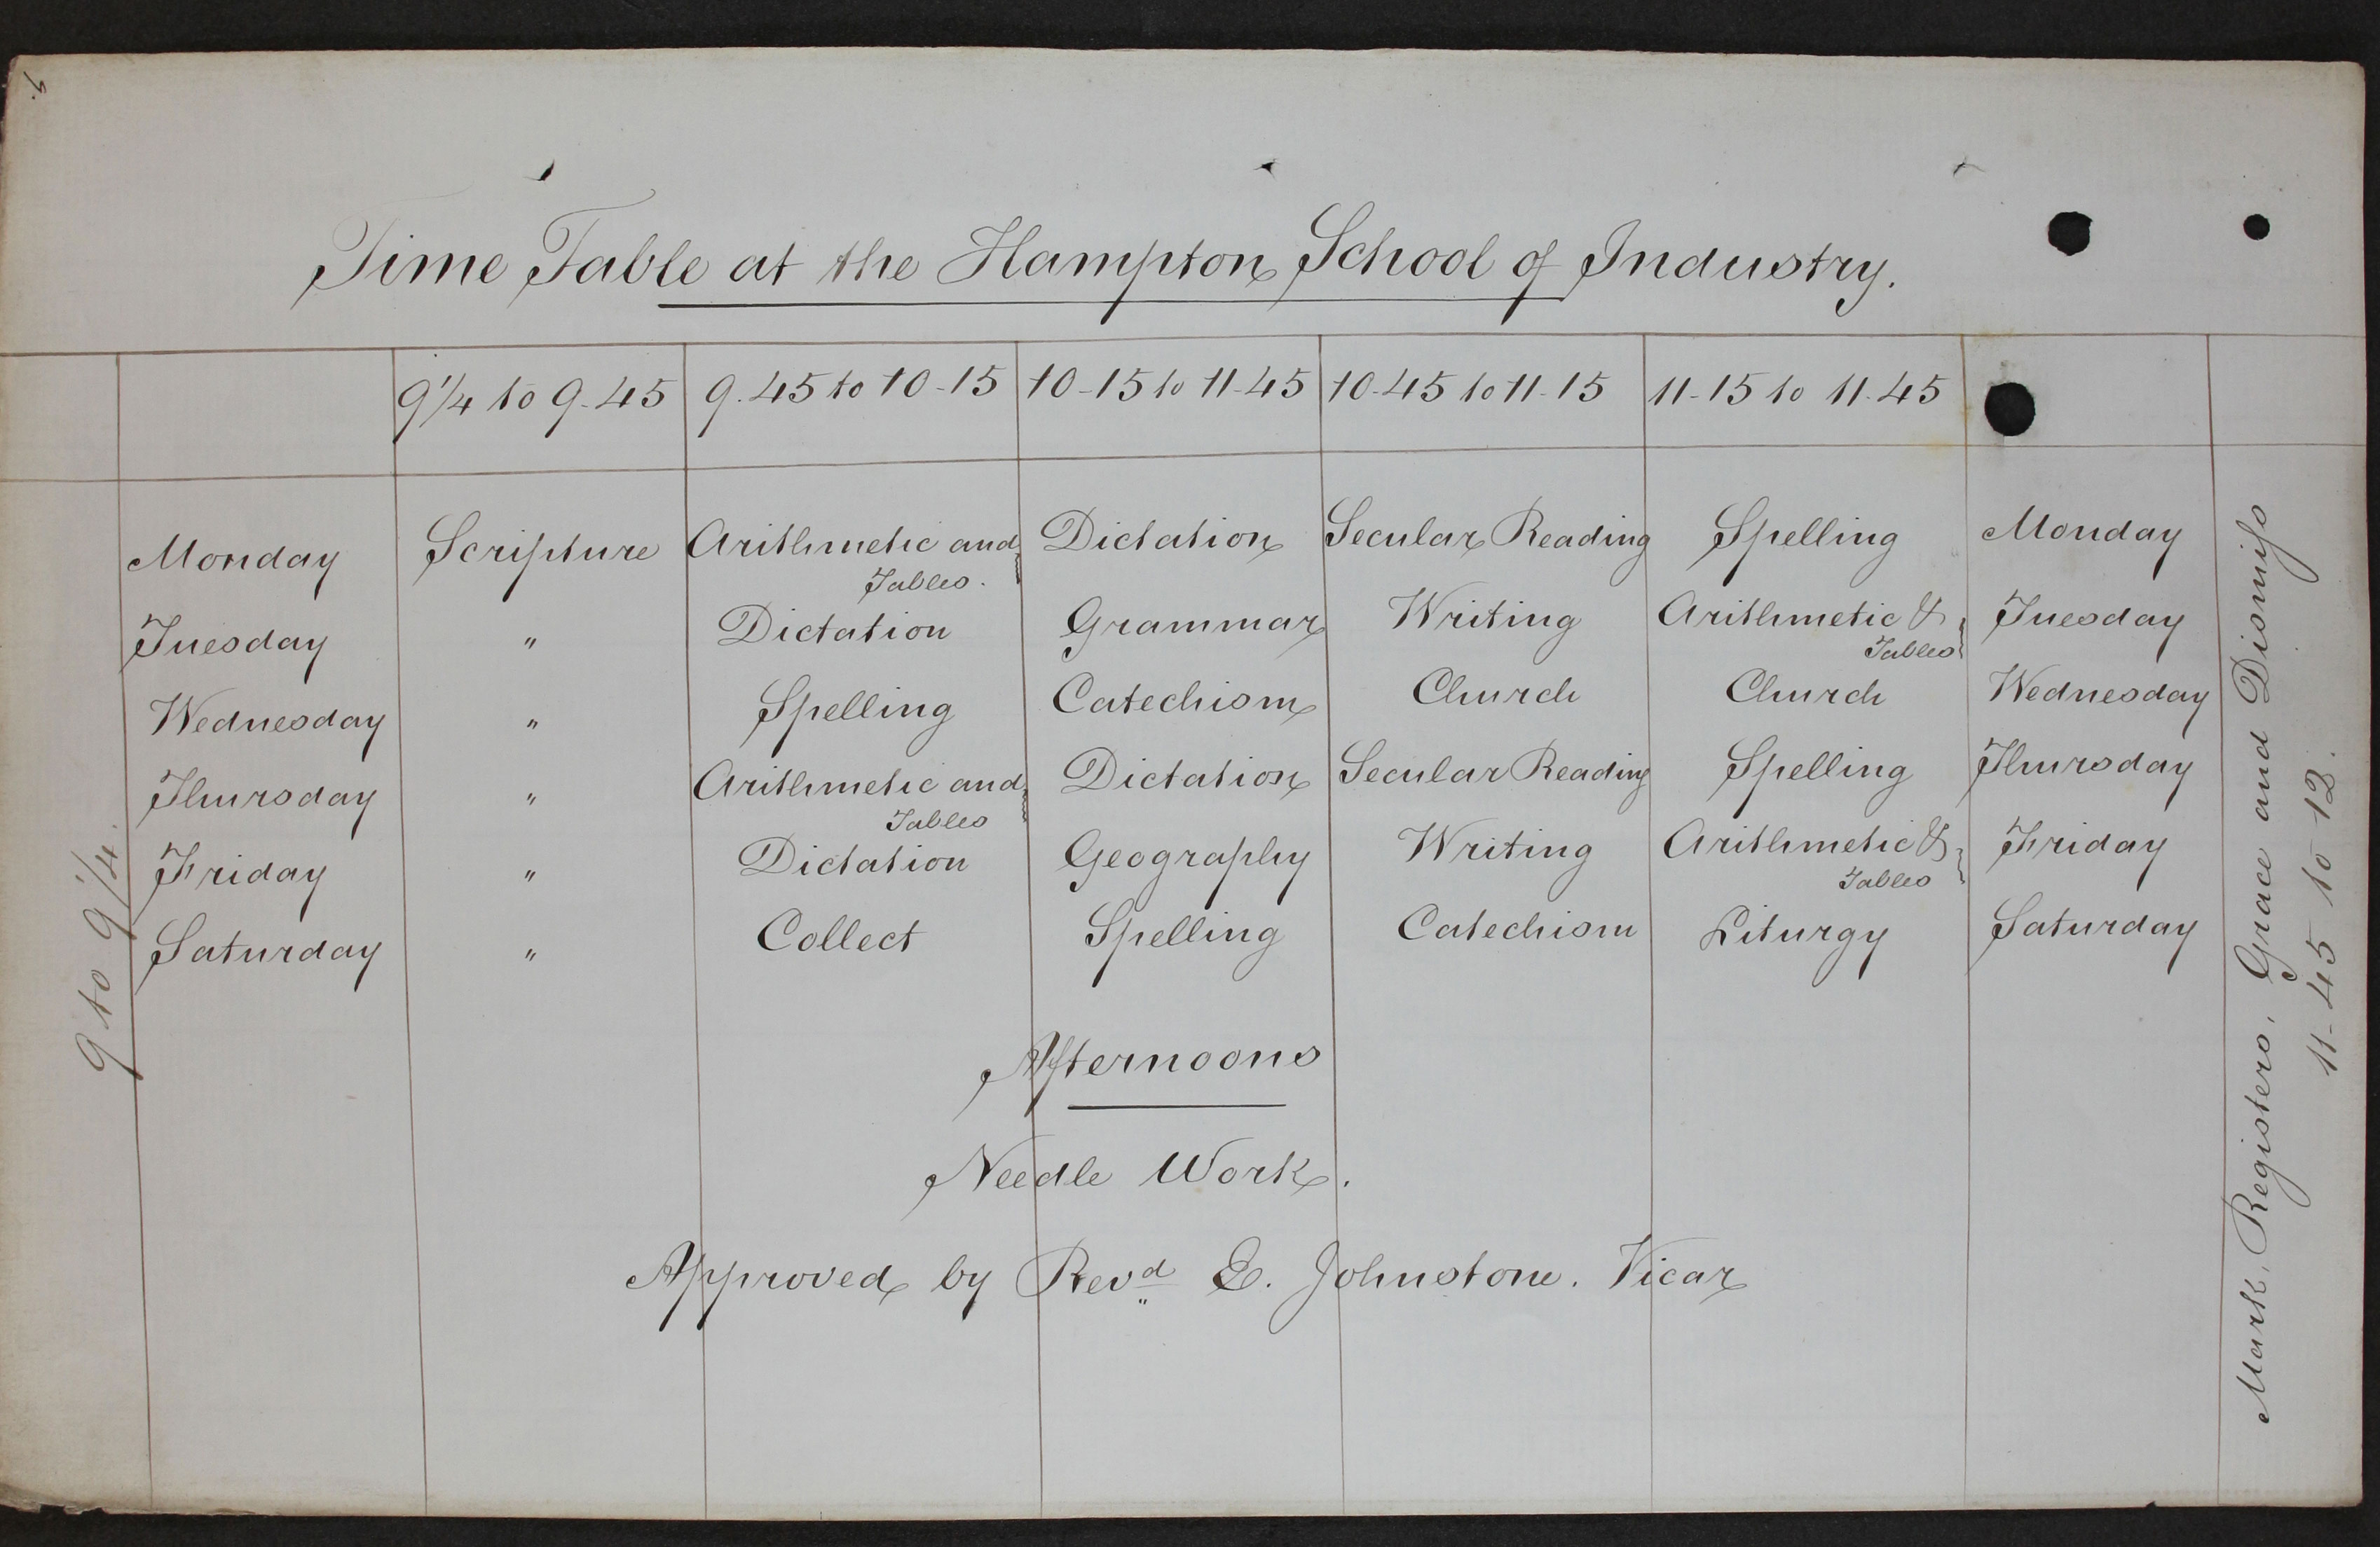 9.
Time Table at the Hampton School of Industry.
9¼ to 9-45 | 9.45 to 10-15 | 10-15 to 11-45 | 10-45 to 11-15 | 11-15 to 11.45
Monday | Scripture | Arithmetic and Tables. | Dictation | Secular Reading | Spelling | Monday
Tuesday | " | Dictation | Grammar | Writing | Arithmetic & Tables | Tuesday
Wednesday | " | Spelling | Catechism | Church | Church | Wednesday
Thursday | " | Arithmetic and Tables | Dictation | Secular Reading | Spelling | Thursday
Friday | " | Dictation | Geography | Writing | Arithmetic & Tables | Friday
Saturday | " | Collect | Spelling | Catechism | Liturgy | Saturday
9 to 9¼.
Mark, Registers, Grace and Dismiss
11-45 to 12.
Afternoons
Needle Work.
Approved by Revd E. Johnstone. Vicar